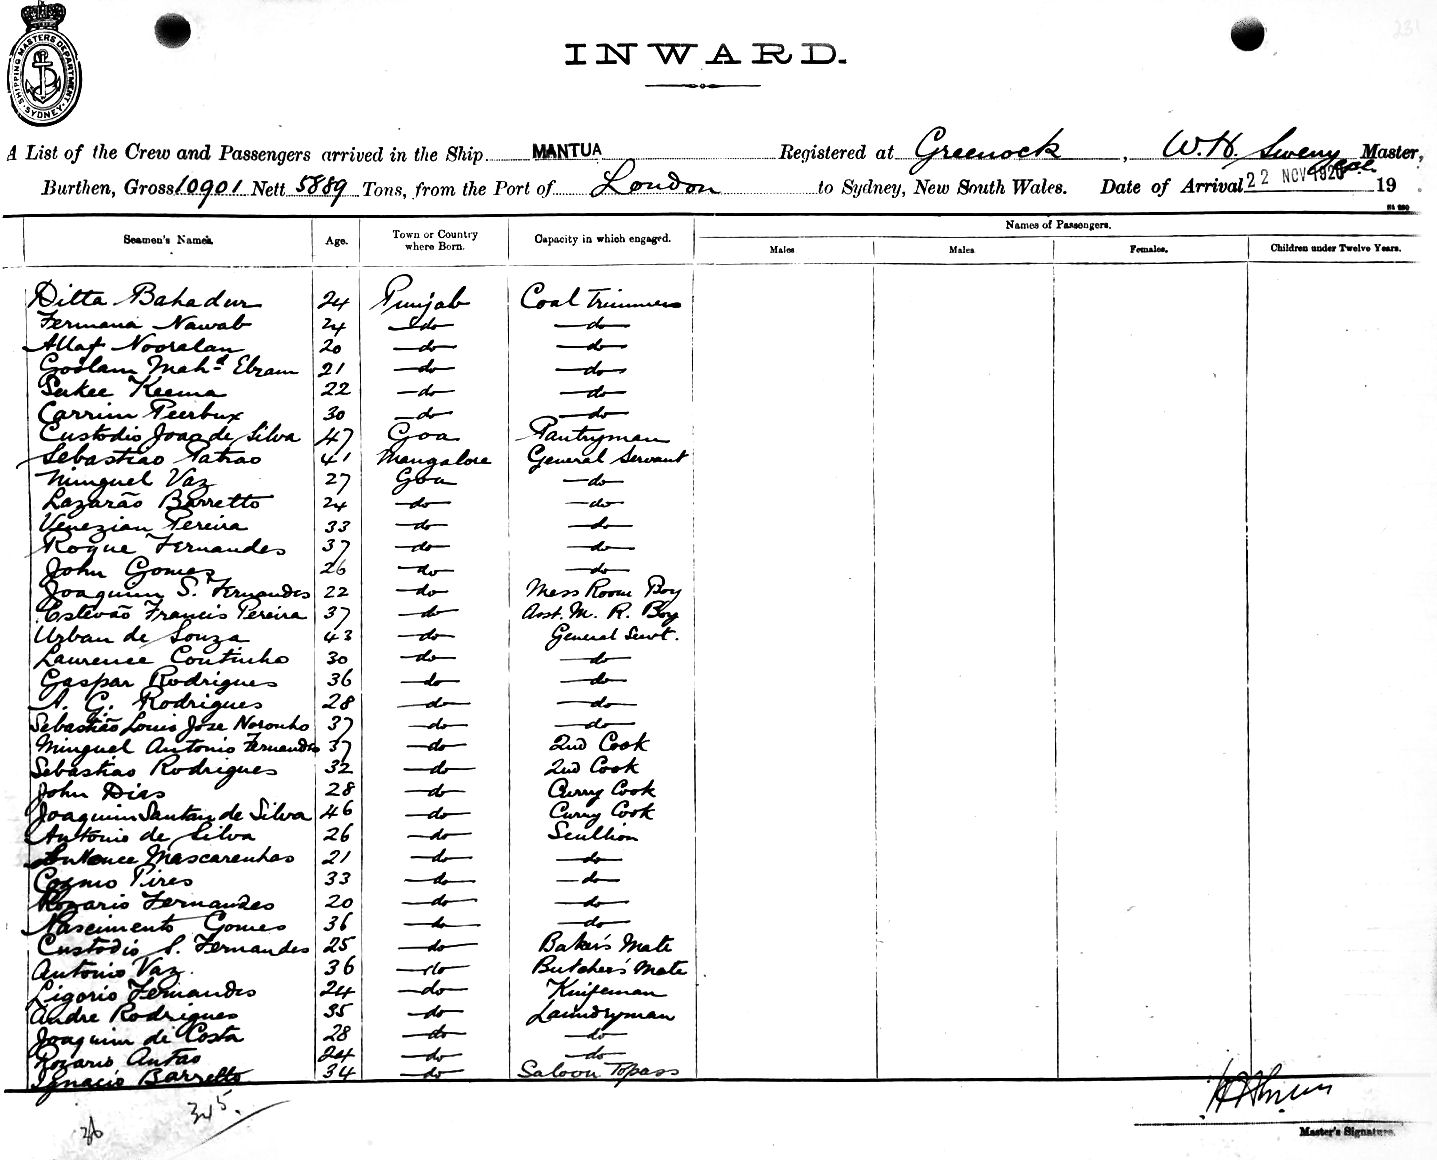 231
SHIPPING MASTERS DEPARTMENT SYDNEY
INWARD.
A List of the Crew and Passengers arrived in the Ship MANTUA Registered at Greenock, W.H. Sweny Master,
Burthen, Gross 10901 Nett 5889 Tons, from the Port of London to Sydney, New South Wales. Date of Arrival 22 NOV 1920 19
Seamen's Names. Age. Town or Country where Born. Capacity in which engaged. Names of Passengers.
Males Males Females. Children under Twelve Years.
Ditta Bahadur 24 Punjab Coal Trimmers
Fermana Nawab 24 do do
Allaf Nooralan 20 do do
Goolam Mahd Ebram 21 do do
Sukee Keema 22 do do
Carrim Peerbux 30 do do
Custodio Joao de Silva 47 Goa Pantryman
Sebastiao Patrao 41 Mangalore General Servant
Minguel Vaz 27 Goa do
Lazarão Barretto 24 do do
Venezian Pereira 33 do do
Roque Fernandes 37 do do
John Gomes 26 do do
Joaquim S. Fernandes 22 do Mess Room Boy
Estevão Francis Pereira 37 do Asst. M. R. Boy
Urban de Souza 43 do General Servt.
Laurence Coutinho 30 do do
Gaspar Rodrigues 36 do do
A. G. Rodrigues 28 do do
Sebastião Louis Jose Noronho 37 do do
Minguel Antonio Fernandes 37 do 2nd Cook
Sebastiao Rodrigues 32 do 2nd Cook
John Dias 28 do Curry Cook
Joaquim Santan de Silva 46 do Curry Cook
Antonio de Silva 26 do Scullion
Mascarenhas 21 do do
Cosmo Pires 33 do do
Rozario Fernandes 20 do do
Nascimento Gomes 36 do do
Custodio S. Fernandes 25 do Baker's Mate
Antonio Vaz. 36 do Butcher's Mate
Ligorio Fernandes 24 do Knifeman
Andre Rodrigues 35 do Laundryman
Joaquim de Costa 28 do do
Rozario Antao 24 do do
Ignacio Barretto 34 do Saloon Topass
36 345.
Master's Signature.